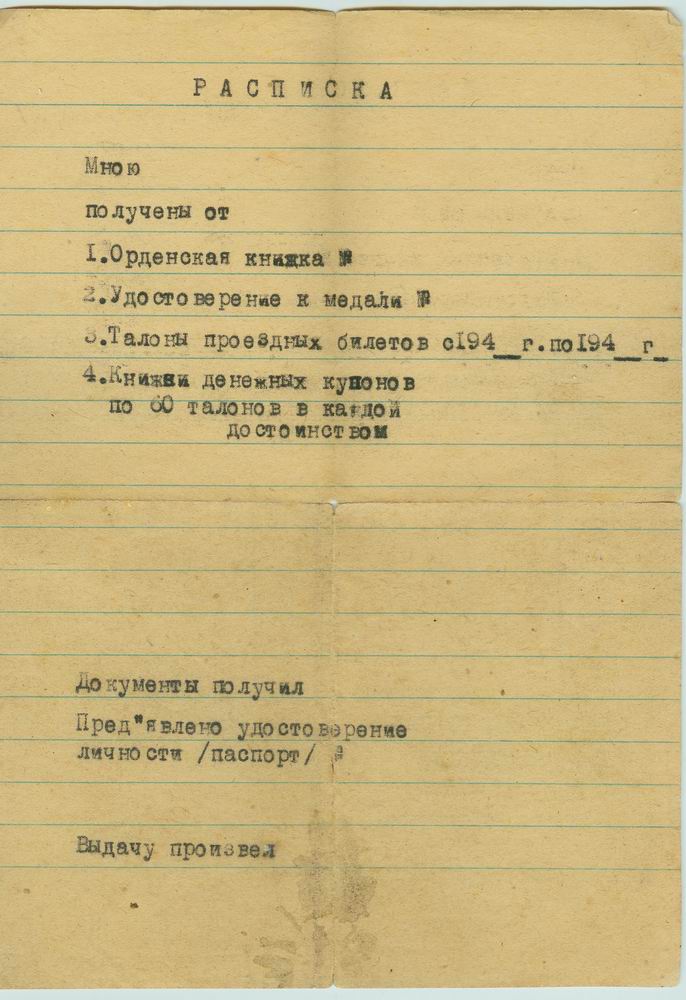 РАСПИСКА
Мною
получены от
1.Орденская книжка №
2.Удостоверение к медали №
3.Талоны проездных билетов с194__г.по194__г_
4.Книжки денежных купонов
по 60 талонов в каждой
достоинством
Документы получил
Пред"явлено удостоверение
личности /паспорт/ №
Выдачу произвел